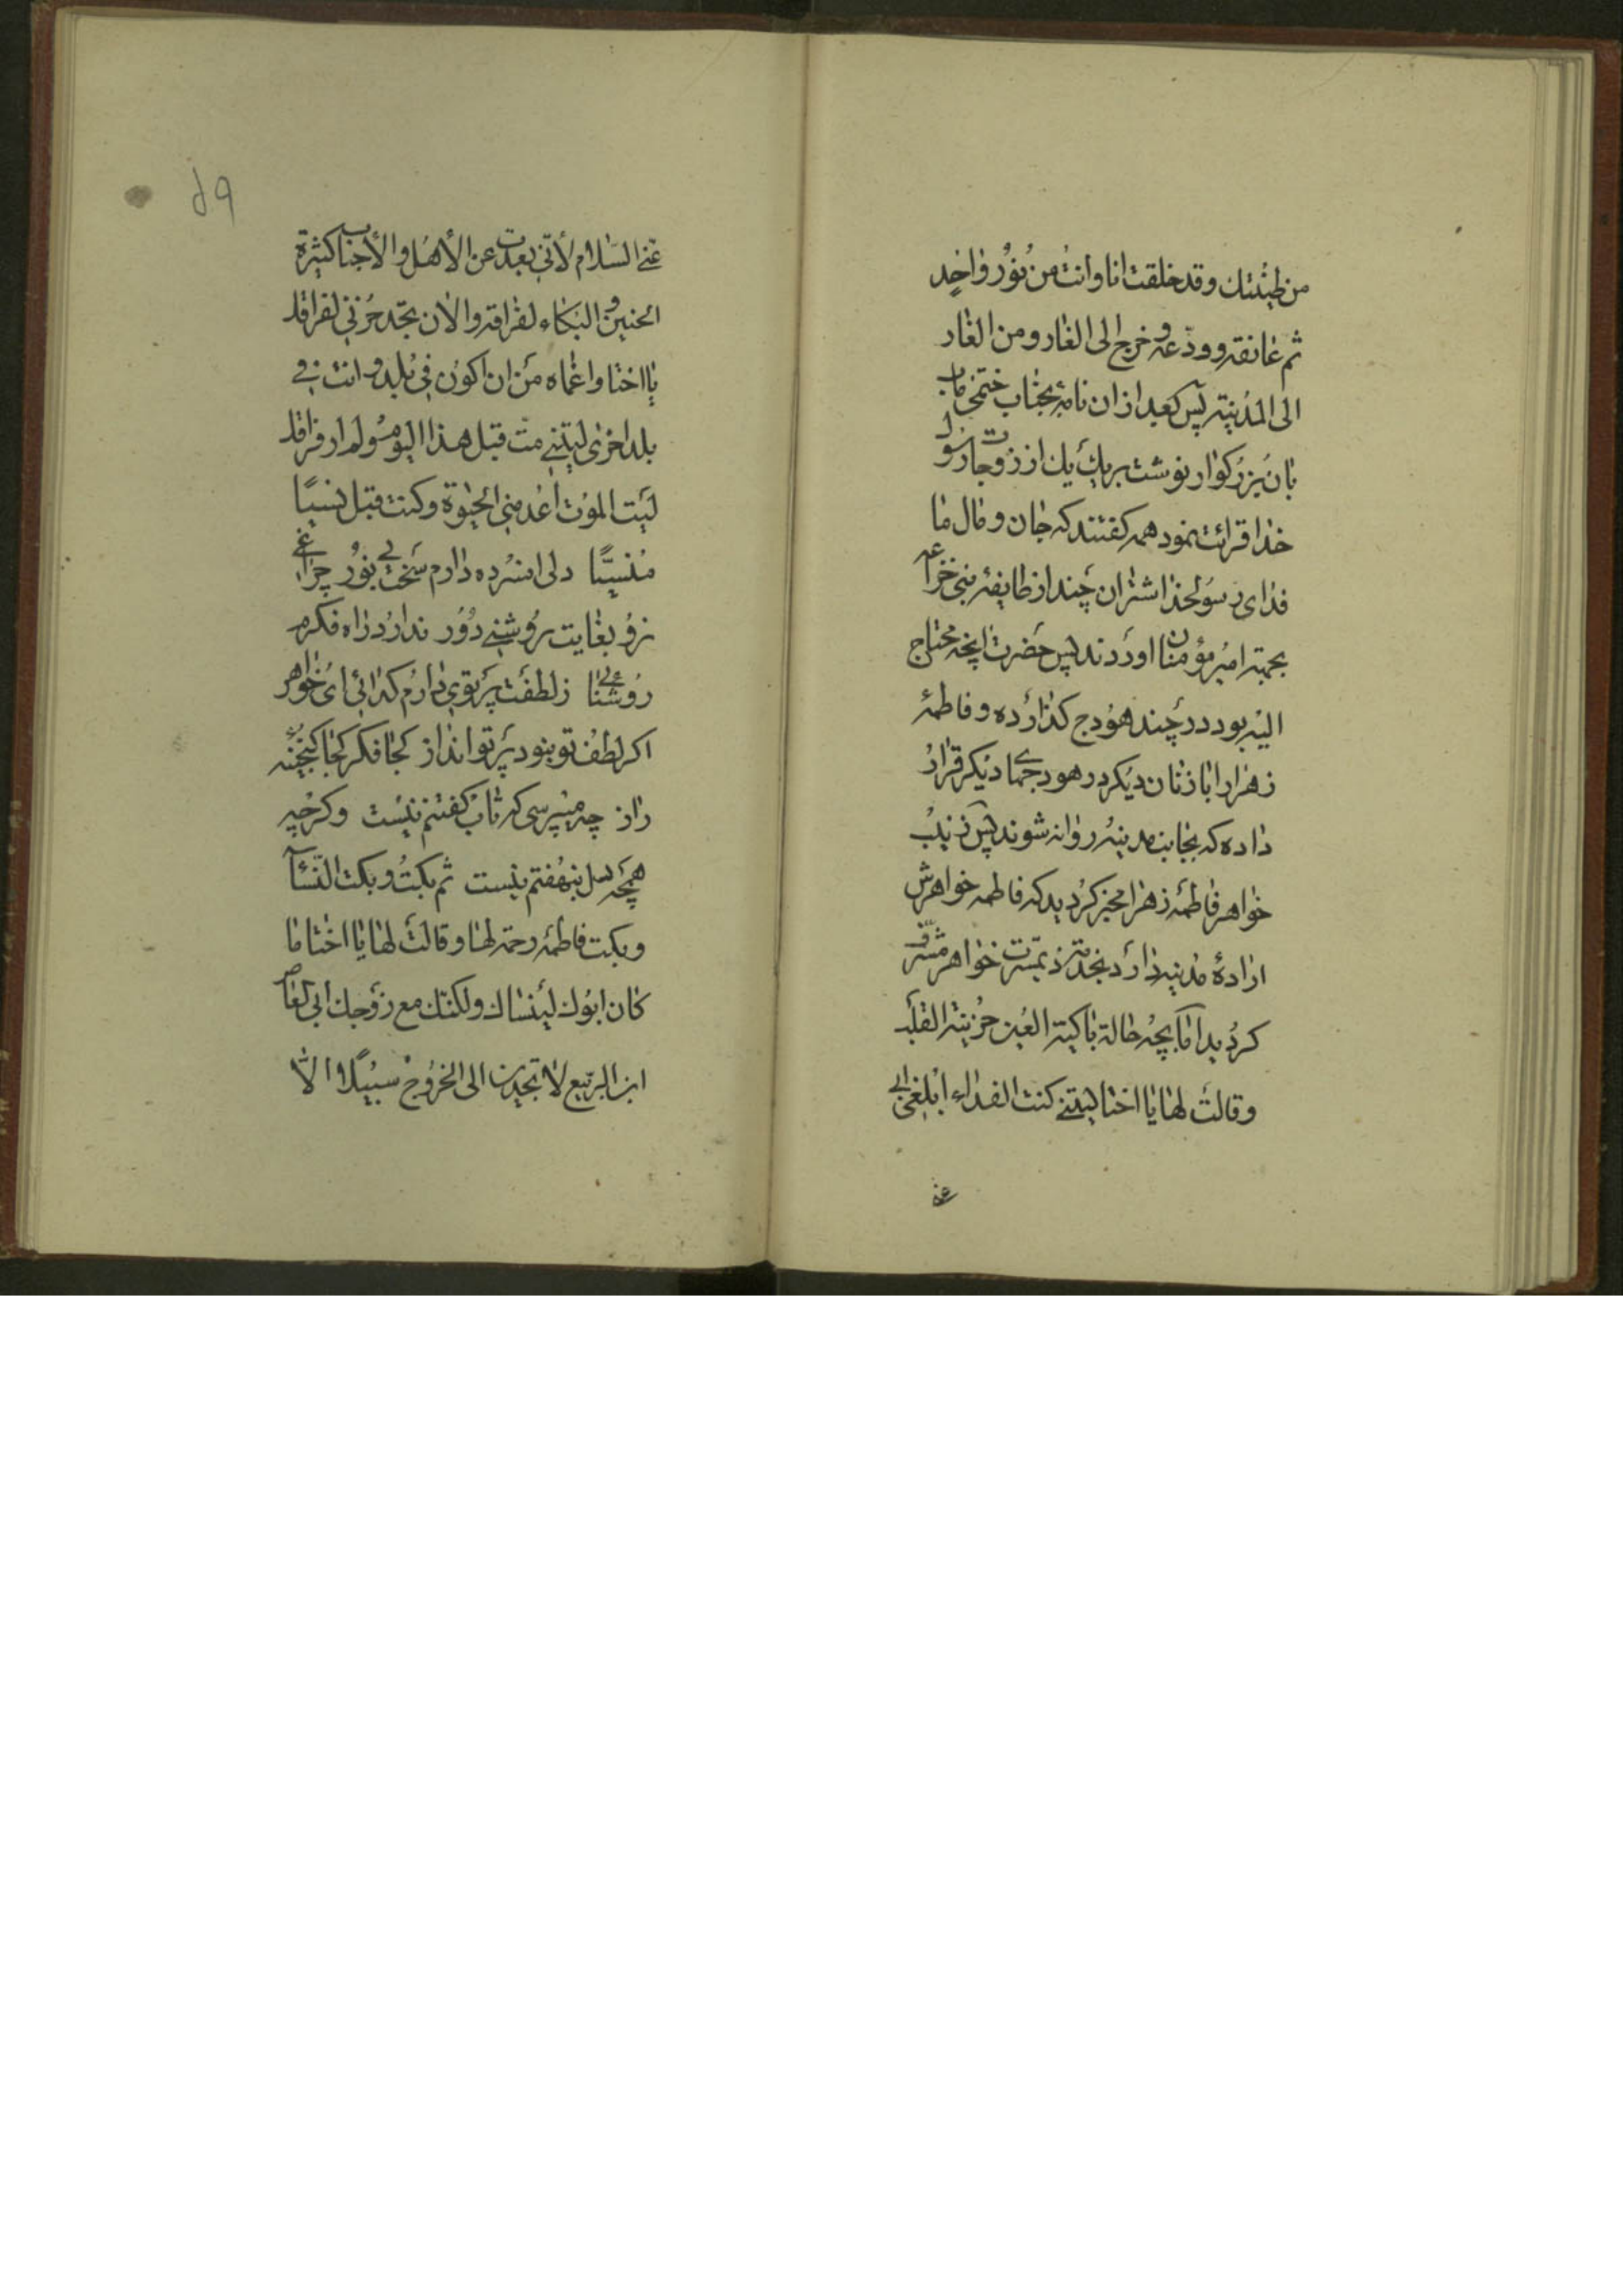 من طینتك وقد خلقت انا وانت من نور واحد
ثم عانقه وودعه وخرج الی الغار ومن الغار
الی المدینة پس بعد از ان نامهٔ بجناب ختمی ماب
بان بزرکوار نوشت بر یك یك از زوجات رسول
خدا قرائت نمود همه کفتند که جان و مال ما
فدای رسولخدا شتران چند از طایفهٔ بنی خزاعه
بجهة امیرمؤمنان اوردند پس حضرت انچه محتاج
الیه بود در چند هودج کذارده و فاطمهٔ
زهرا را با زنان دیکر در هودجهای دیکر قرار
داده که بجانب مدینه روانه شوند پس زینب
خواهر فاطمهٔ زهرا مخبر کردید که فاطمه خواهرش
ارادهٔ مدینه دارد بخدمت خواهر مشرف
کردید اما بچه حالة باکیة العین حزینة القلب
وقالت لها یا اختا لیتنی کنت الفداء ابلغی ابی
عنی
۵۹
عنی السلام لأنی بعدت عن الأهل والأحباب کثیرة
الحنین والبکاء لفراقه والان تجدد حزنی لفراقك
یا اختا واغماه من ان اکون فی بلد وانت فی
بلد اخری لیتنی مت قبل هذا الیوم ولم ار فراقك
لیت الموت اعدمنی الحیوة وکنت قبل نسیا
منسیا دلی افسرده دارم سخت بی نور چراغی
زو بغایت روشنی دور ندارد راه فکرم
روشنائی ز لطفت پرتوی دارم کدائی ای خواهر
اکر لطف تو نبود پرتو انداز کجا فکر کجا کنجینهٔ
راز چه میپرسی که تاب کفتنم نیست وکرچه
همچه دل بنهفتم نیست ثم بکت وبکت النسآء
وبکت فاطمه رحمة لها وقالت لها یا اختا ما
کان ابوك لینساك ولکنك مع زوجك ابی العاص
ابن الربیع لا تجدین الی الخروج سبیلا الا